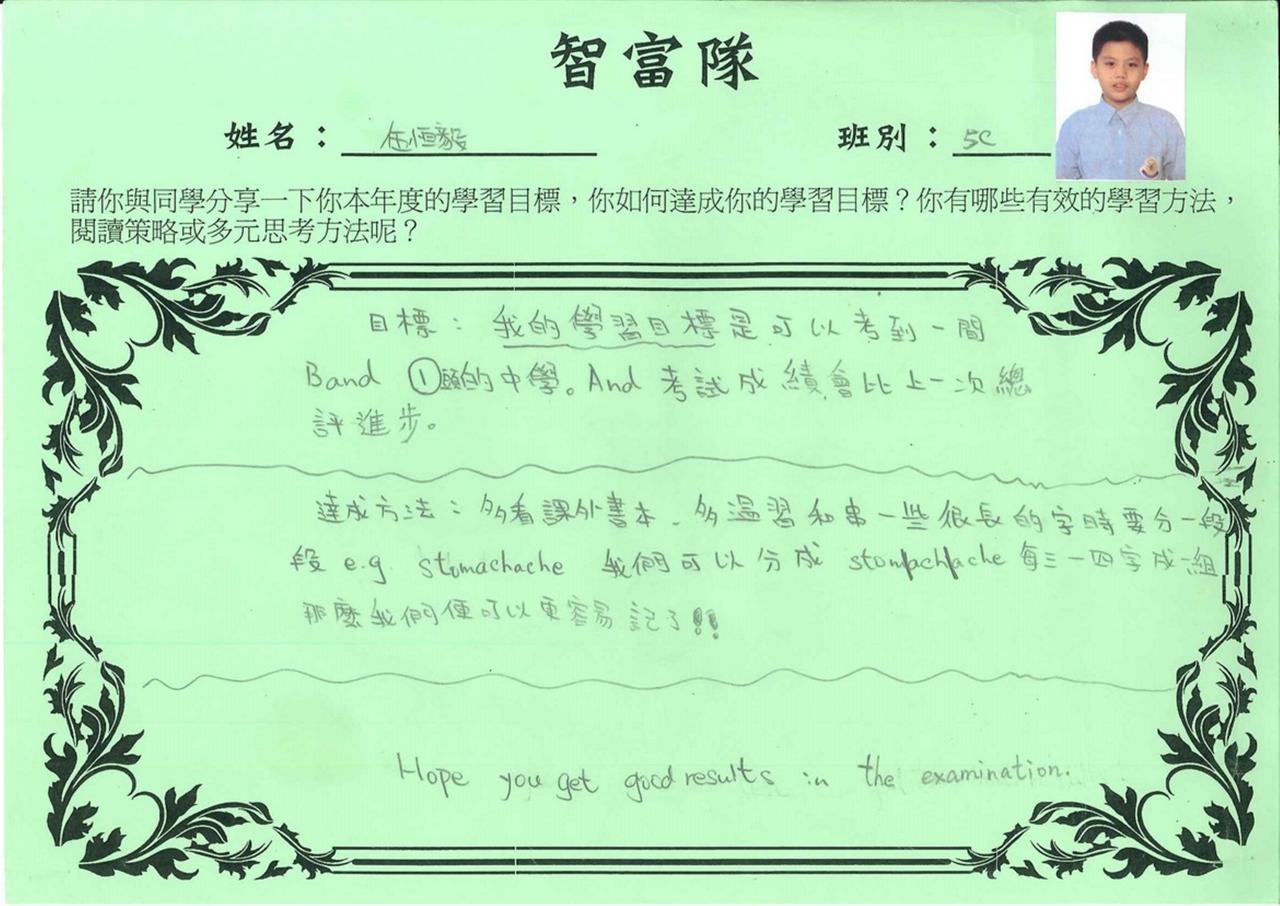 智富隊
姓名：任恒毅 班別：5C
請你與同學分享一下你本年度的學習目標，你如何達成你的學習目標？你有哪些有效的學習方法，
閱讀策略或多元思考方法呢？
目標：我的學習目標是可以考到一間
Band ①願的中學。And 考試成績會比上一次總
評進步。
達成方法：多看課外書本、多溫習和串一些很長的字時要分一段
段 e.g stomachache 我們可以分成 stom/ach/ache 每三一四字成一組
那麼我們便可以更容易記了!!
Hope you get good results in the examination.